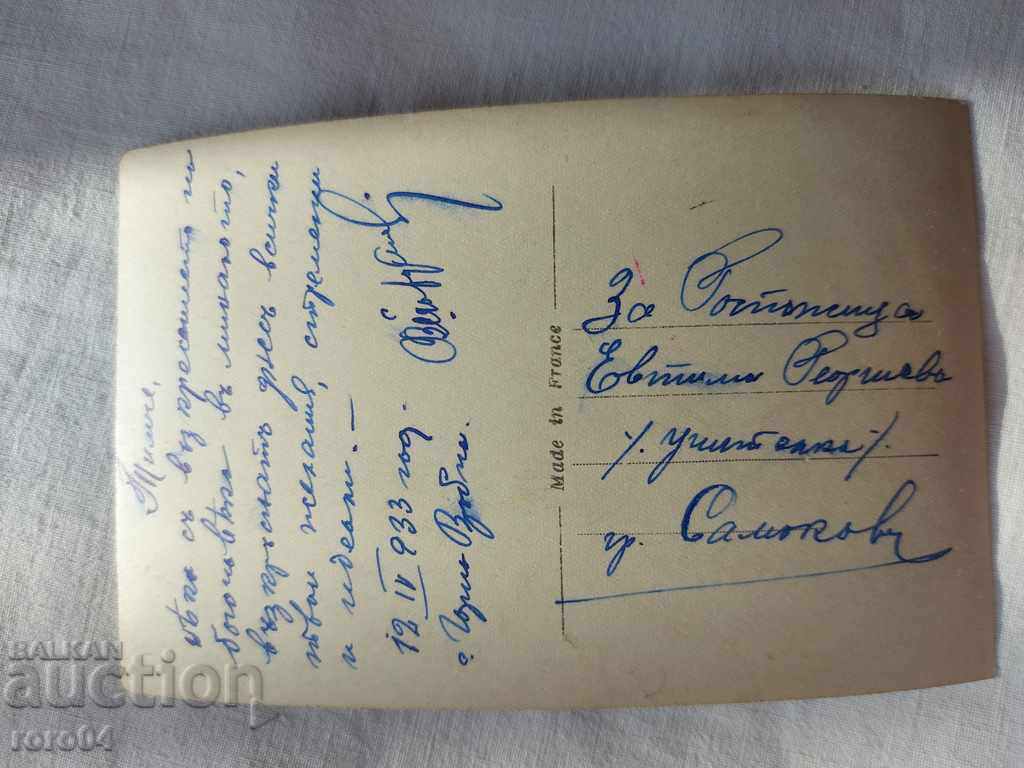 Тиме,
Нека съ възкресението на
богочовѣка въ миналото,
възкръснатъ днесъ всички
твои желания, стремежи
и идеали. —
12 IV 933 год.
с. Горно
Made in France
За Госпожица
Евтима Георгиева
/. учителка /.
гр. Самоковъ
BALKAN
auction
roro04